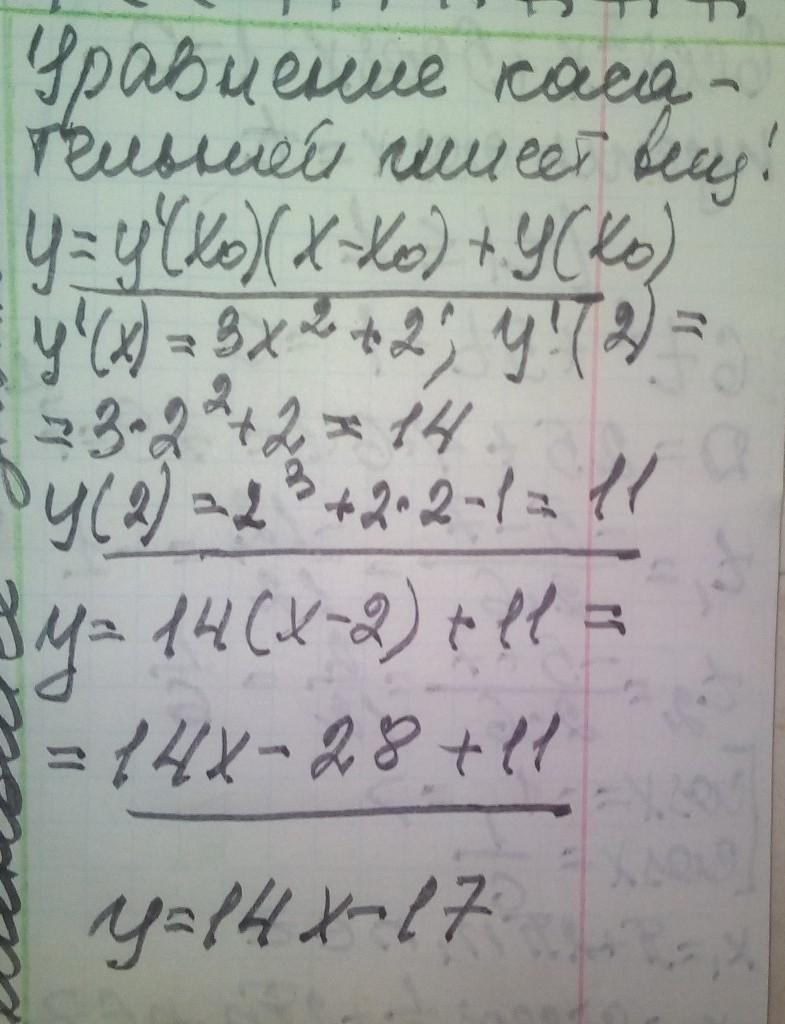 Уравнение каса-
тельной имеет вид:
y = y'(x₀)(x-x₀) + y(x₀)
y'(x) = 3x² + 2; y'(2) =
= 3·2² + 2 = 14
y(2) = 2³ + 2·2 - 1 = 11
y = 14(x-2) + 11 =
= 14x - 28 + 11
y = 14x - 17